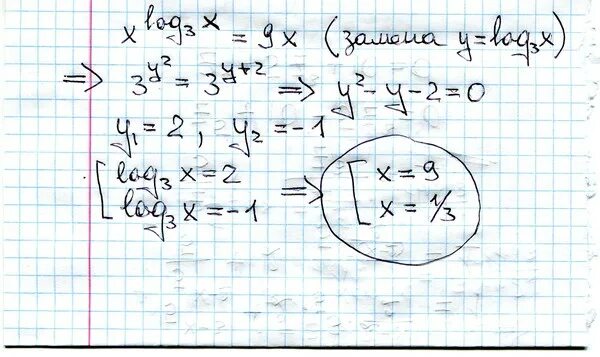 x^{log₃x} = 9x (замена y=log₃x)
=> 3^{y²} = 3^{y+2} => y²-y-2=0
y₁=2, y₂=-1
[ log₃x=2 => [ x=9
log₃x=-1 x=1/3